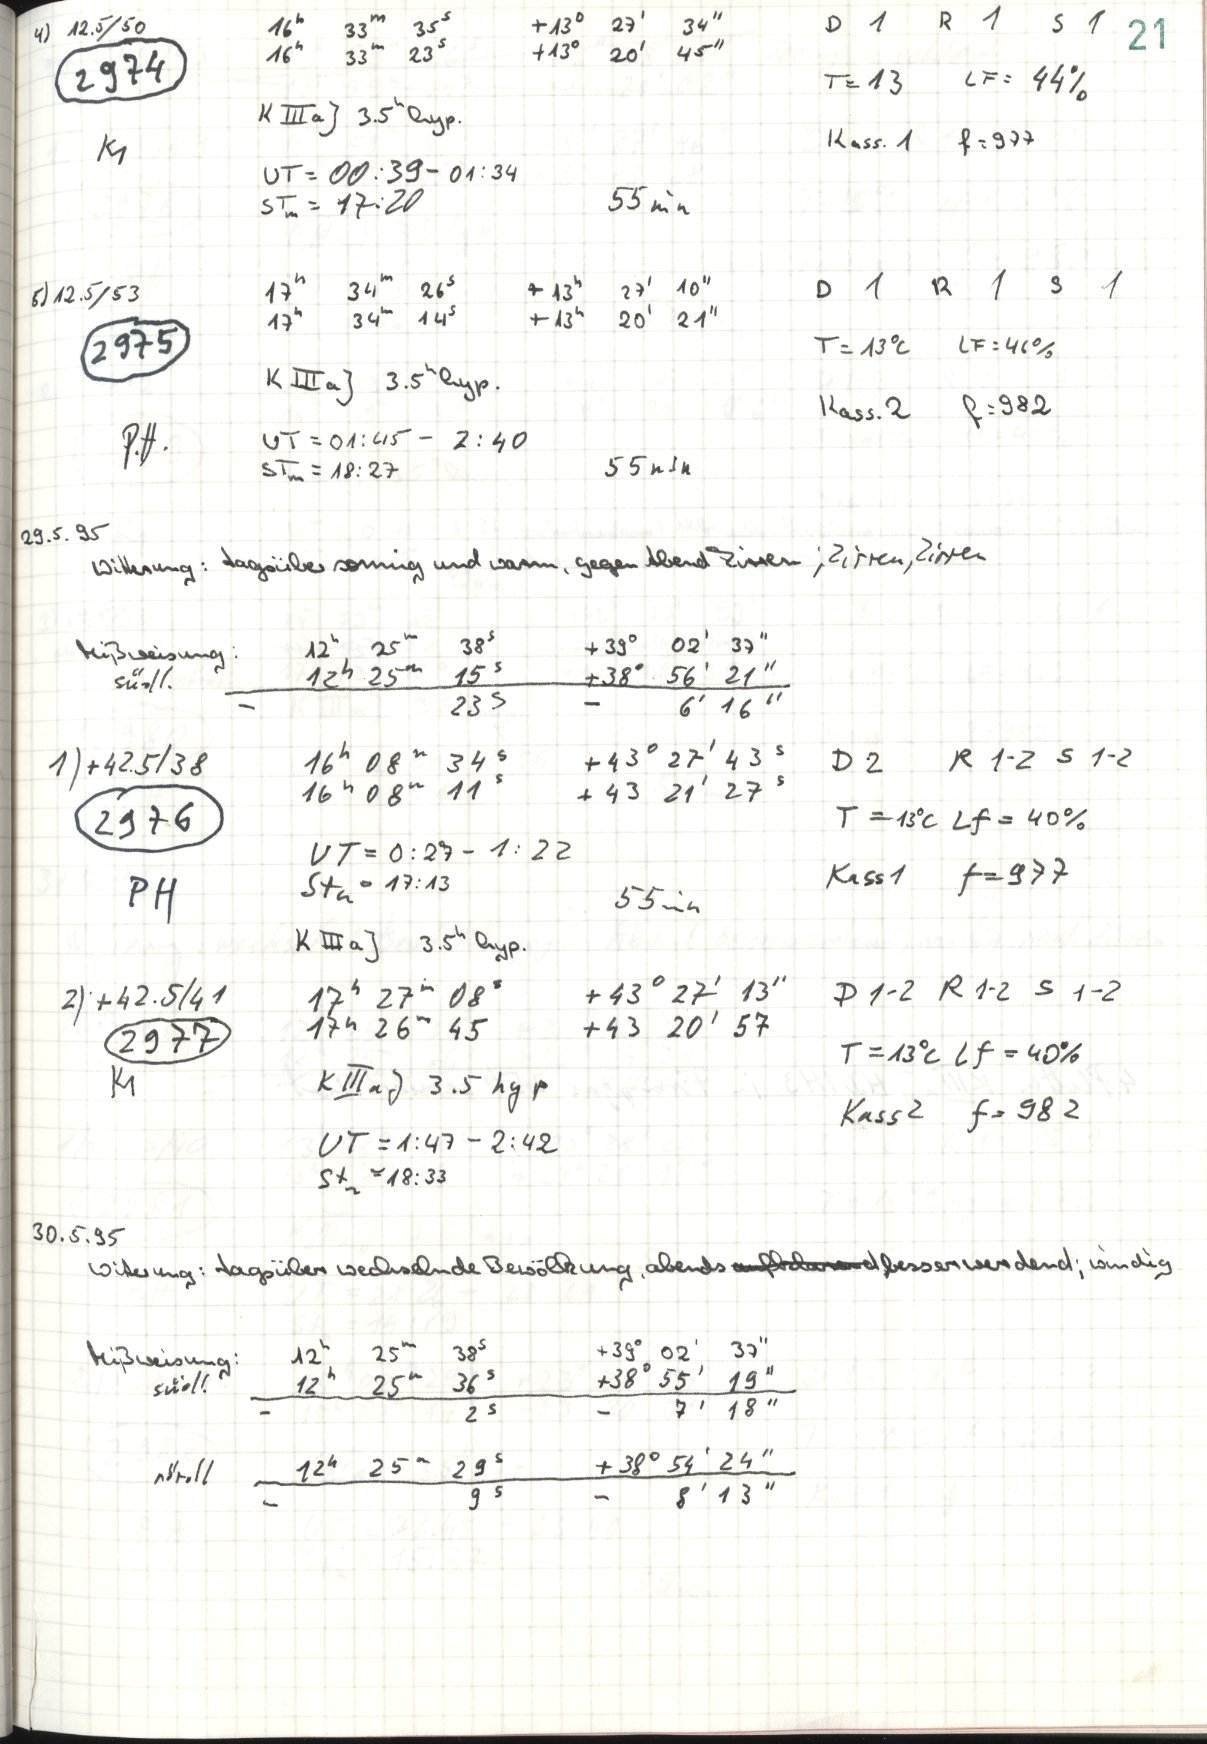 21
4) 12.5/50 16h 33m 35s +13° 27' 34" D 1 R 1 S 1
2974 16h 33m 23s +13° 20' 45"
T=13 LF= 44%
K IIIaJ 3.5h hyp.
Kass. 1 f=977
UT= 00:39 - 01:34
STm = 17:20 55 min
5) 12.5/53 17h 34m 26s +13h 27' 10" D 1 R 1 S 1
2975 17h 34m 14s +13h 20' 21"
T=13°C LF=46%
K IIIaJ 3.5h hyp.
Kass. 2 f=982
P.H. UT=01:45 - 2:40
STm = 18:27 55 min
29.5.95
Witterung: tagsüber sonnig und warm, gegen Abend Zirren; Zirren, Zirren
Mißweisung: 12h 25m 38s +39° 02' 37"
südl. 12h 25m 15s +38° 56' 21"
- 23s - 6' 16"
1) +42.5/38 16h 08m 34s +43° 27' 43s D 2 R 1-2 S 1-2
2976 16h 08m 11s +43 21' 27s
T=13°C Lf=40%
UT=0:27 - 1:22
PH Stm = 17:13 55min
Kass 1 f=977
K IIIaJ 3.5h hyp.
2) +42.5/41 17h 27m 08s +43° 27' 13" D 1-2 R 1-2 S 1-2
2977 17h 26m 45 +43 20' 57
T=13°C Lf=40%
K IIIaJ 3.5 hyp
Kass 2 f=982
UT=1:47 - 2:42
Stm = 18:33
30.5.95
Witterung: tagsüber wechselnde Bewölkung, abends besser werdend; windig
Mißweisung: 12h 25m 38s +39° 02' 37"
südl. 12h 25m 36s +38° 55' 19"
- 2s - 7' 18"
nördl 12h 25m 29s +38° 54' 24"
- 9s - 8' 13"